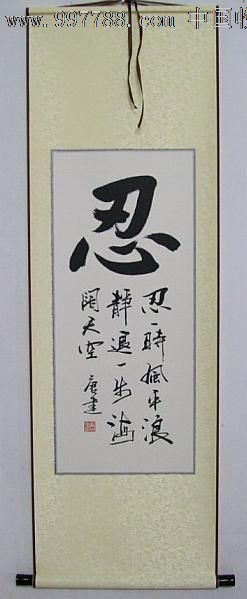 www.997788.com 中国收
忍
忍一時風平浪
靜退一步海
闊天空 唐建